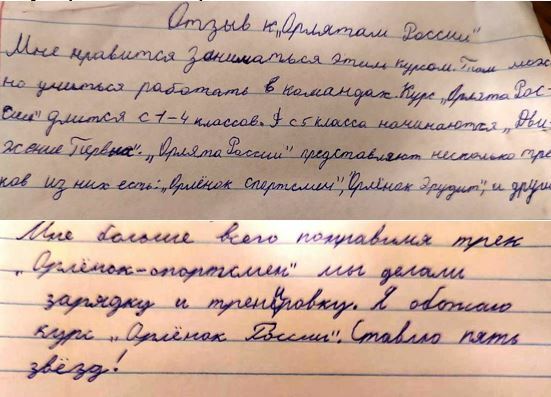 Отзыв к „Орлятам России"
Мне нравится заниматься этим курсом. Там мож-
но учиться работать в командах. Курс „Орлята Рос-
сии" длится с 1-4 классов. А с 5 класса начинаются „Дви-
жение Первых". „Орлята России" представляют несколько тре
ков из них есть: „Орлёнок спортсмен", „Орлёнок Эрудит", и други
Мне больше всего понравился трек
„Орлёнок-спортсмен" мы делали
зарядку и тренировку. Я обожаю
курс „Орлёнок России". Ставлю пять
звёзд!